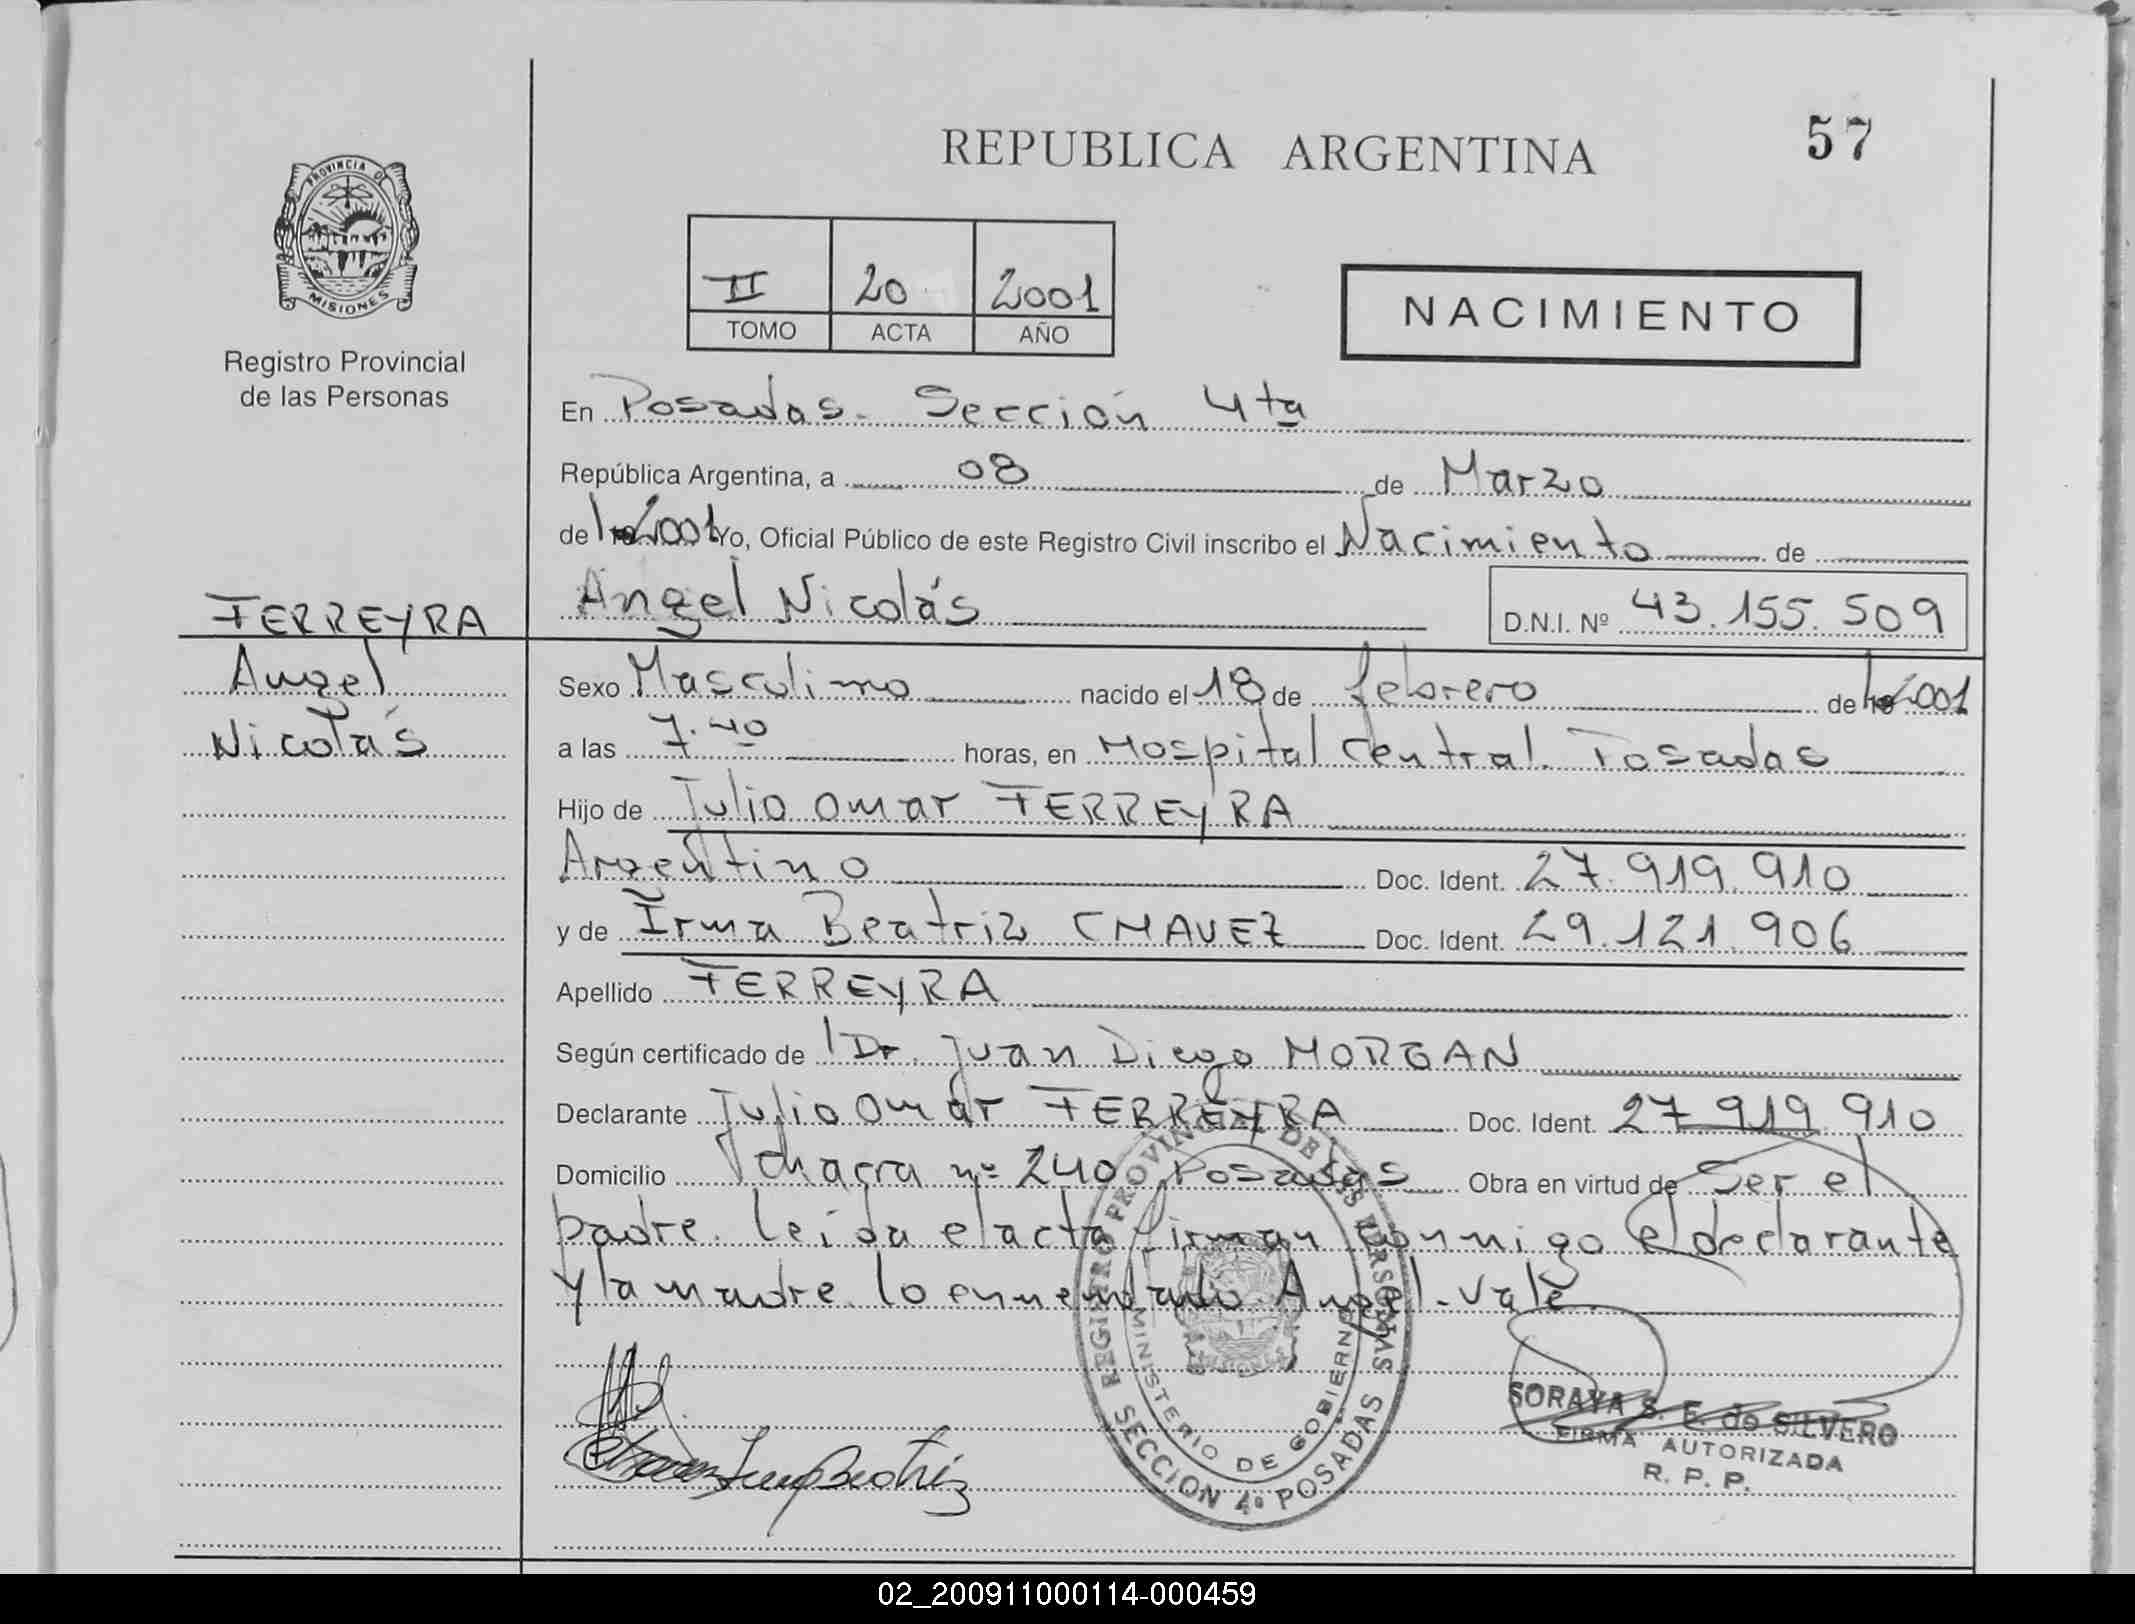 REPUBLICA ARGENTINA
57
PROVINCIA DE
MISIONES
Registro Provincial
de las Personas
II 20 2001
TOMO ACTA AÑO
NACIMIENTO
En Posadas. Sección 4ta
República Argentina, a 08 de Marzo
de 2001 Yo, Oficial Público de este Registro Civil inscribo el Nacimiento de
FERREYRA
Angel Nicolás
D.N.I. Nº 43.155.509
Angel
Nicolás
Sexo Masculino nacido el 18 de febrero de 2001
a las 7.40 horas, en Hospital Central. Posadas
Hijo de Julio Omar FERREYRA
Argentino Doc. Ident. 27.919.910
y de Irma Beatriz CHAVEZ Doc. Ident. 29.121.906
Apellido FERREYRA
Según certificado de Dr. Juan Diego MORGAN
Declarante Julio Omar FERREYRA Doc. Ident. 27.919.910
Domicilio Chacra nº 240 Posadas Obra en virtud de Ser el
padre. leida el acta firman conmigo el declarante
y la madre. lo enmendado. Angel. vale.
REGISTRO PROVINCIAL DE LAS PERSONAS
MINISTERIO DE GOBIERNO
SECCION 4ª POSADAS
SORAYA S. E. de SILVERO
FIRMA AUTORIZADA
R. P. P.
02_200911000114-000459